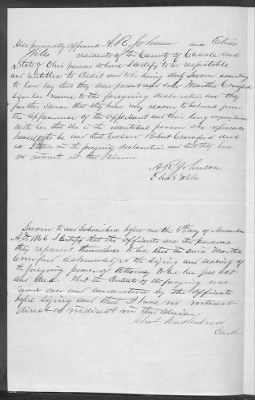 Also personally appeared A. R. Johnson and Elias
residents of the County of and
State of Ohio persons whom I certify to be respectable
and entitled to credit and who being duly sworn according
to law say that they were present and saw Martha
sign her name to the foregoing declaration and they
further swear that they have every reason to believe from
the appearance of the applicant and their long acquaintance
with her that she is the identical person she represents
herself to be and that
as stated in the foregoing declaration and that they have
no interest in the claim
A R Johnson
Elias
Sworn to and subscribed before me the 6th day of November
A.D. 1866 I certify that the affiants are the persons
they represent themselves to be that the said Martha
acknowledged the signing and sealing of
the foregoing power of Attorney to be her free act
and deed. that the contents of the foregoing was
read over and understood by the affiants
before signing and that I have no interest
direct or indirect in the claim
Clerk